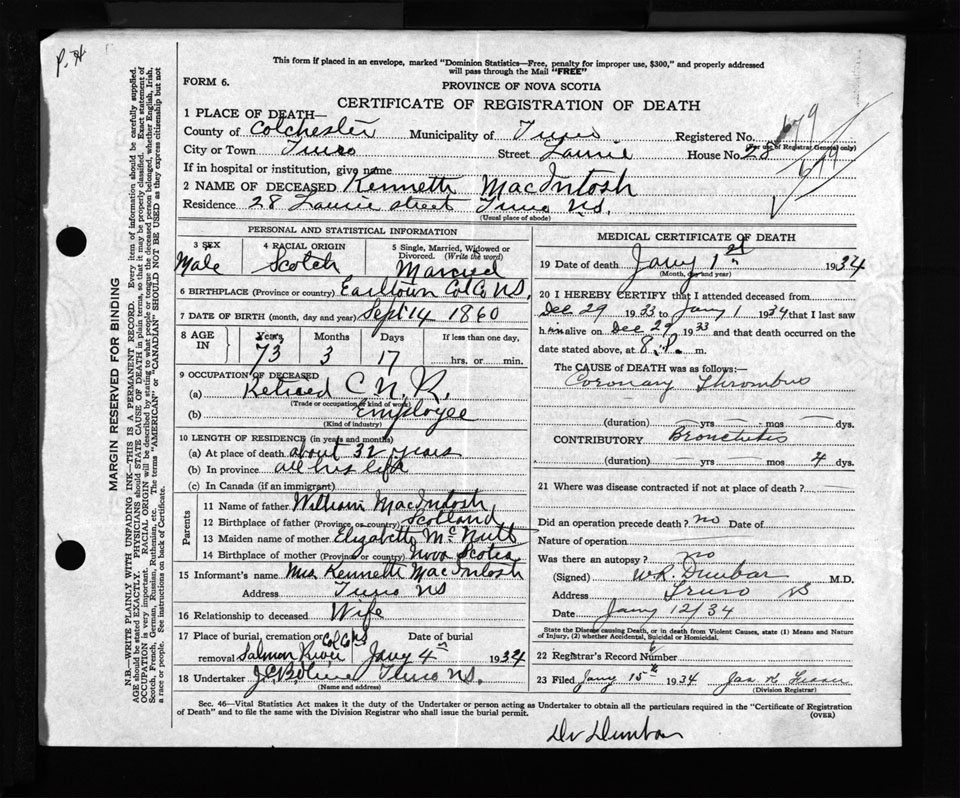 P. H
This form if placed in an envelope, marked "Dominion Statistics—Free, penalty for improper use, $300," and properly addressed
will pass through the Mail "FREE"
FORM 6.
PROVINCE OF NOVA SCOTIA
CERTIFICATE OF REGISTRATION OF DEATH
1 PLACE OF DEATH—
County of Colchester Municipality of Truro Registered No. 679
(For use of Registrar General only)
City or Town Truro Street Laurie House No. 28
679
If in hospital or institution, give name
2 NAME OF DECEASED Kenneth MacIntosh
Residence 28 Laurie street Truro N.S.
(Usual place of abode)
PERSONAL AND STATISTICAL INFORMATION
3 SEX Male
4 RACIAL ORIGIN Scotch
5 Single, Married, Widowed or Divorced. (Write the word) Married
6 BIRTHPLACE (Province or country) Earltown Col Co N.S.
7 DATE OF BIRTH (month, day and year) Sept 14 1860
8 AGE IN Years 73 Months 3 Days 17 If less than one day, hrs. or min.
9 OCCUPATION OF DECEASED
(a) Retired C.N.R.
(Trade or occupation or kind of work)
(b) Employee
(Kind of industry)
10 LENGTH OF RESIDENCE (in years and months)
(a) At place of death about 32 years
(b) In province all his life
(c) In Canada (if an immigrant)
Parents
11 Name of father William MacIntosh
12 Birthplace of father (Province or country) Scotland
13 Maiden name of mother Elizabeth McNutt
14 Birthplace of mother (Province or country) Nova Scotia
15 Informant's name Mrs Kenneth MacIntosh
Address Truro NS
16 Relationship to deceased Wife
17 Place of burial, cremation or removal Salmon River Col Co NS Date of burial Jany 4th 1934
18 Undertaker Truro N.S.
(Name and address)
MEDICAL CERTIFICATE OF DEATH
19 Date of death Jany 1st 1934
(Month, day and year)
20 I HEREBY CERTIFY that I attended deceased from
Dec 29 1933 to Jany 1 1934, that I last saw
him alive on Dec 29 1933 and that death occurred on the
date stated above, at 8 P. m.
The CAUSE OF DEATH was as follows:—
Coronary Thrombus
(duration) yrs mos dys.
CONTRIBUTORY Bronchitis
(duration) yrs mos 4 dys.
21 Where was disease contracted if not at place of death?
Did an operation precede death? no Date of
Nature of operation
Was there an autopsy? no
(Signed) W.R. Dunbar M.D.
Address Truro NS
Date Jany 12/34
State the Disease causing Death, or in death from Violent Causes, state (1) Means and Nature of Injury, (2) whether Accidental, Suicidal or Homicidal.
22 Registrar's Record Number 6
23 Filed Jany 15th 1934
(Division Registrar)
Sec. 46—Vital Statistics Act makes it the duty of the Undertaker or person acting as Undertaker to obtain all the particulars required in the "Certificate of Registration
of Death" and to file the same with the Division Registrar who shall issue the burial permit.
(OVER)
Dr Dunbar
MARGIN RESERVED FOR BINDING
N.B.—WRITE PLAINLY WITH UNFADING INK—THIS IS A PERMANENT RECORD. Every item of information should be carefully supplied.
AGE should be stated EXACTLY. PHYSICIANS should STATE CAUSE OF DEATH in plain terms, so that it may be properly classified. Exact statement of
OCCUPATION is very important. RACIAL ORIGIN will be described by stating to what people or tongue the deceased person belonged, whether English, Irish,
Scotch, French, German, Russian, Ruthenian, etc. The terms "AMERICAN" or "CANADIAN" SHOULD NOT BE USED as they express citizenship but not
a race or people. See instructions on back of Certificate.